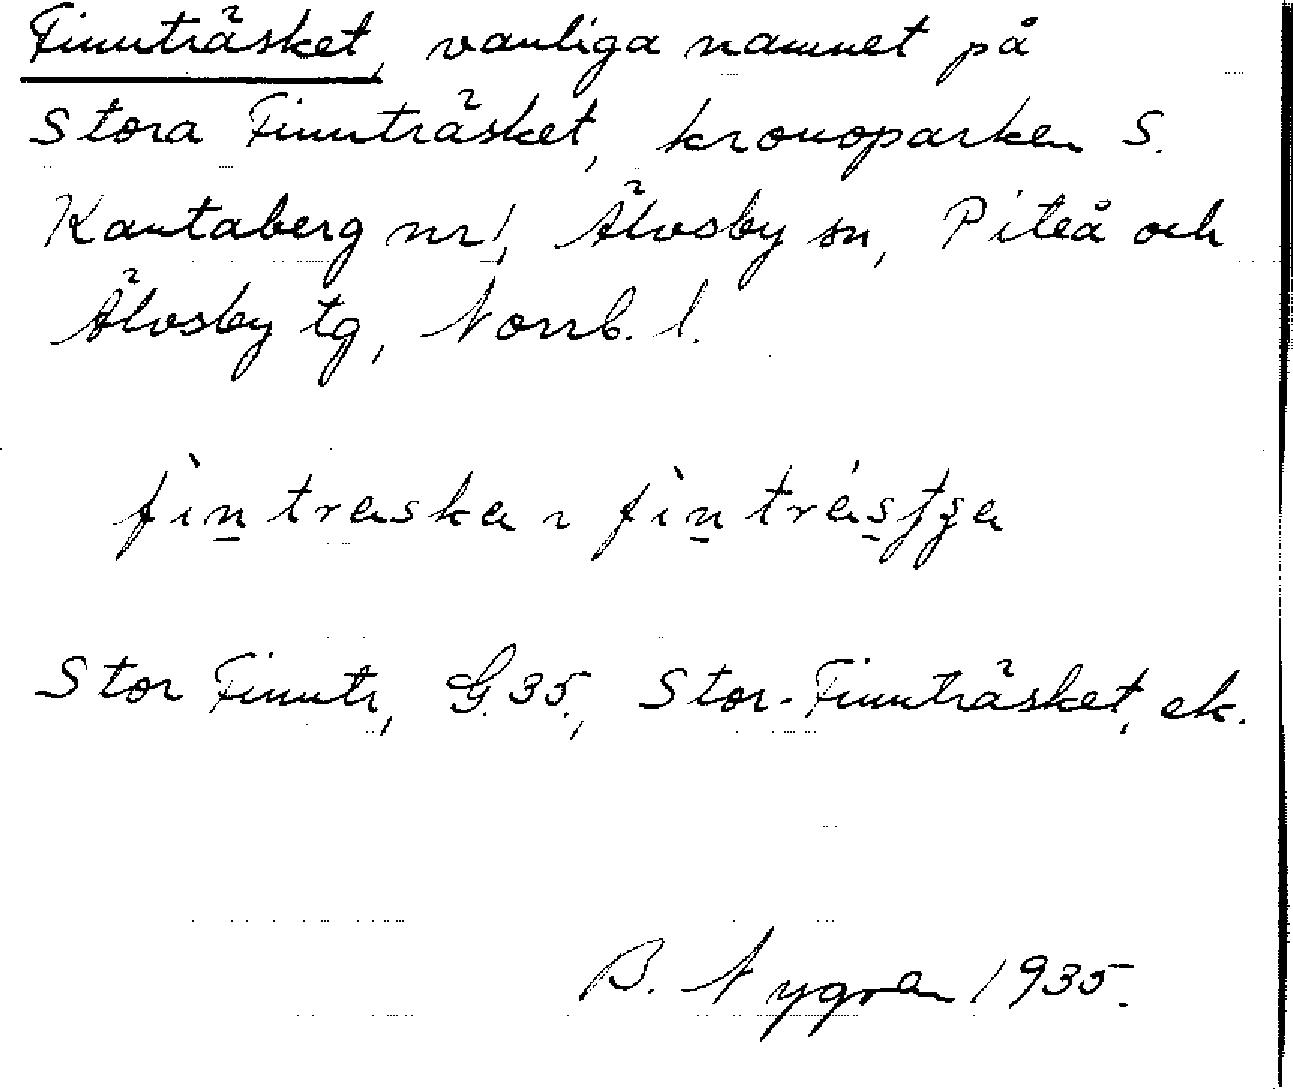 Finnträsket, vanliga namnet på
Stora Finnträsket, kronoparken S.
Kantaberg nr 1, Älvsby sn, Piteå och
Älvsby tg, Norrb. l.
fìn̲ træskæ ~ fìn̲ træ´s̲tʃæ
Stor Finntr., G.35., Stor-Finnträsket, ek.
B. Nygren 1935.